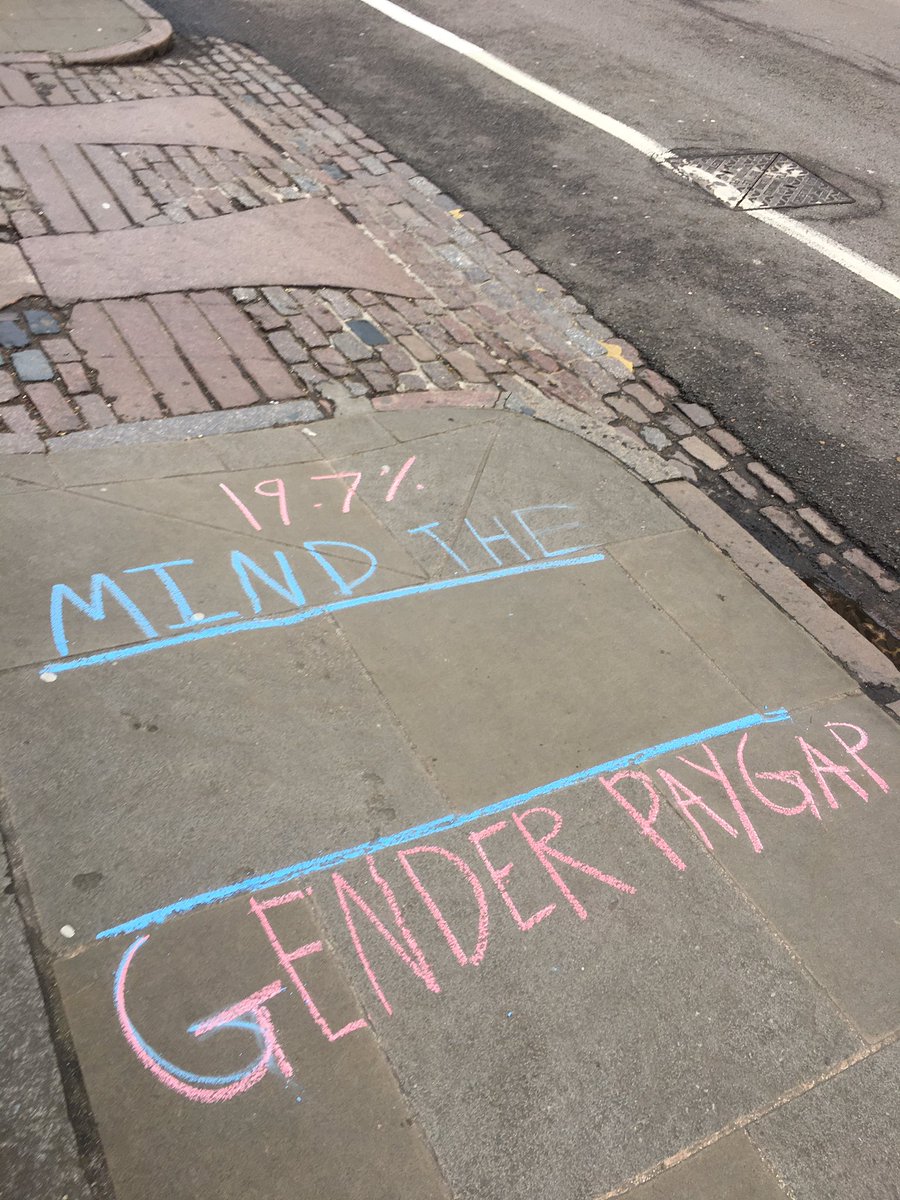 19.7%
MIND THE
GENDER PAY GAP